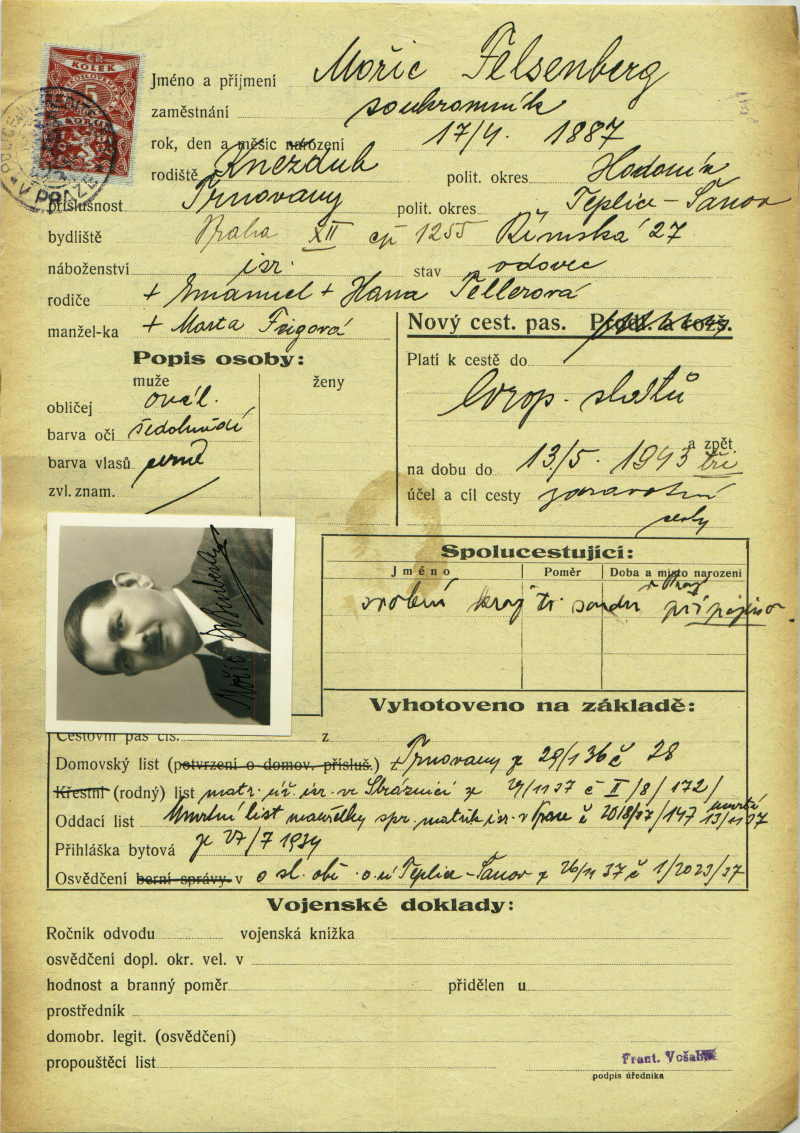 ČR
KOLEK
5
V PRAZE
Jméno a příjmení Mořic Felsenberg
zaměstnání soukromník
rok, den a měsíc narození 17/4. 1887
rodiště Kněždub polit. okres Hodonín
příslušnost Trnovany polit. okres Teplice-Šanov
bydliště Praha XII čp 1255 Římská 27
náboženství isr. stav vdovec
rodiče + Emanuel + Hana Tellerová
manžel-ka + Marta Frigová
Nový cest. pas. Prodl. a rozš.
Popis osoby:
muže ženy
obličej ovál.
barva očí šedohnědé
barva vlasů černé
zvl. znam.
Platí k cestě do
Evrop. států
a zpět
na dobu do 13/5. 1943 tři
účel a cíl cesty zdravotní
cesty
Spolucestující:
Jméno Poměr Doba a místo narození
Vyhotoveno na základě:
Cestovní pas čís. z
Domovský list (potvrzení o domov. přísluš.) Trnovany z 29/1 36 č 28
Křestní (rodný) list matr. úř. isr. ve Strážnici z 29/11 37 č II/8/172/
Oddací list Úmrtní list manželky spr. matrik isr. v Praze č 2018/37/147 umrtí 13/11 37
Přihláška bytová z 27/7 1934
Osvědčení berní správy v o sl. obč. o.ú Teplice-Šanov z 26/11 37 č 1/2023/37
Vojenské doklady:
Ročník odvodu vojenská knížka
osvědčení dopl. okr. vel. v
hodnost a branný poměr přidělen u
prostředník
domobr. legit. (osvědčení)
propouštěcí list
Frant. Vošahlík
podpis úředníka